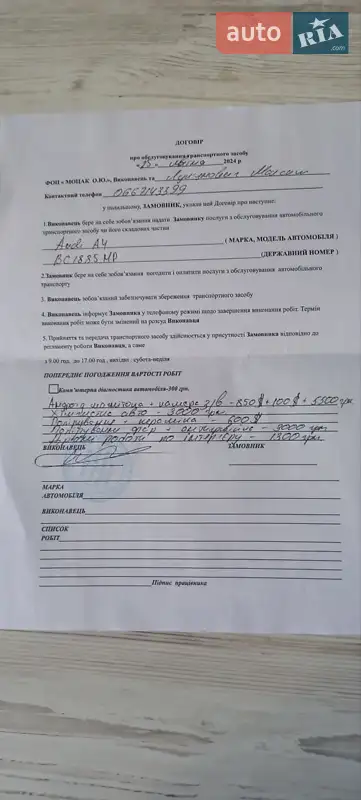 auto RIA.com
ДОГОВІР
про обслуговування транспортного засобу
2024 р
ФОП « МОЦАК О.Ю.», Виконавець та
Контактний телефон 0662143399
у подальшому, ЗАМОВНИК, уклали цей Договір про наступне:
1.Виконавець бере на себе зобов'язання надати Замовнику послуги з обслуговування автомобільного
транспортного засобу чи його складових частин
Audi A4 ( МАРКА, МОДЕЛЬ АВТОМОБІЛЯ )
BC1885MP (ДЕРЖАВНИЙ НОМЕР )
2.Замовник бере на себе зобов'язання погодити і оплатити послуги з обслуговування автомобільного
транспорту
3. Виконавець зобов'язаний забезпечувати збереження транспортного засобу
4. Виконавець інформує Замовника у телефонному режимі щодо завершення виконання робіт. Термін
виконання робіт може бути змінений на розсуд Виконавця
5. Прийняття та передача транспортного засобу здійснюється у присутності Замовника відповідно до
регламенту роботи Виконавця, а саме
з 9.00 год. до 17.00 год , вихідні : субота-неділя
ПОПЕРЕДНЄ ПОГОДЖЕННЯ ВАРТОСТІ РОБІТ
Комп'ютерна діагностика автомобіля-300 грн.
+ номера - 850 $ + 100 $ + 5500 грн
Хімчистка авто - 3000 грн
Полірування + кераміка - 600 $
Полірування фар + - 3000 грн
роботи по інтер'єру - 1500 грн
ВИКОНАВЕЦЬ ЗАМОВНИК
МАРКА
АВТОМОБІЛЯ
ВИКОНАВЕЦЬ
СПИСОК
РОБІТ
Підпис працівника